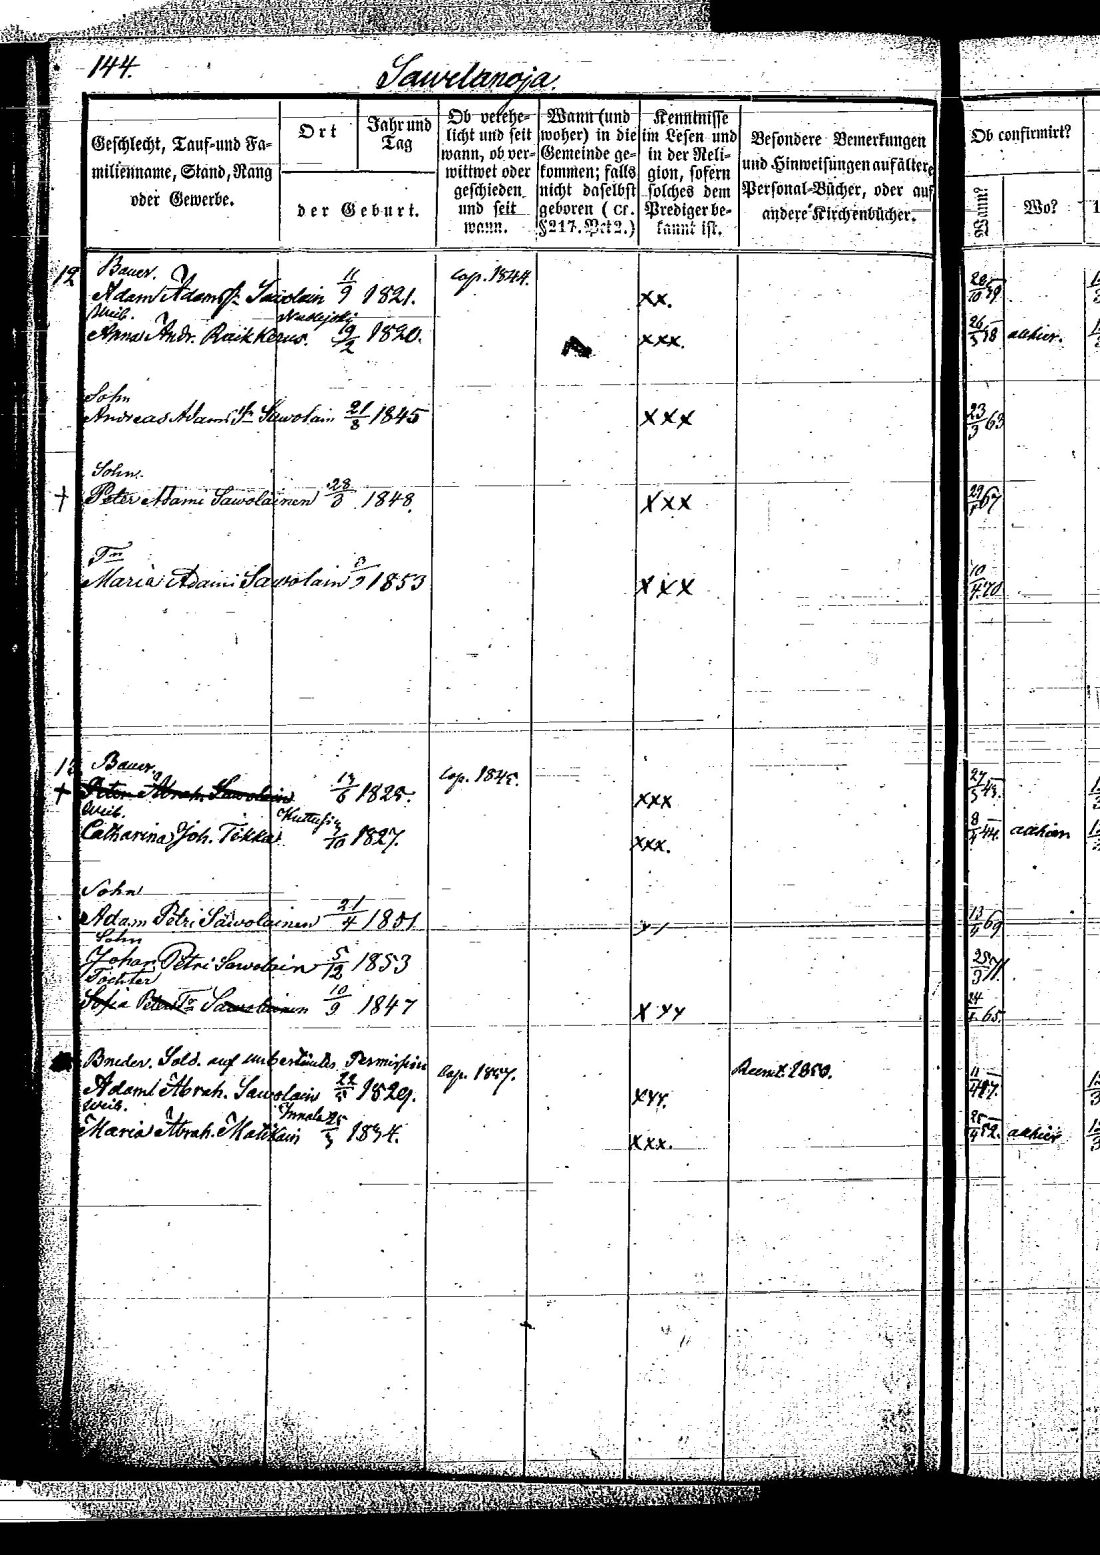 144.
Sawolanoja.
Geschlecht, Tauf- und Fa-
milienname, Stand, Rang
oder Gewerbe.
Ort
Jahr und
Tag
der Geburt.
Ob verehe-
licht und seit
wann, ob ver-
wittwet oder
geschieden
und seit
wann.
Wann (und
woher) in die
Gemeinde ge-
kommen; falls
nicht daselbst
geboren (cr.
§217. Pct 2.)
Kenntnisse
im Lesen und
in der Reli-
gion, sofern
solches dem
Prediger be-
kannt ist.
Besondere Bemerkungen
und Hinweisungen auf ältere
Personal-Bücher, oder auf
andere Kirchenbücher.
Ob confirmirt?
Wann?
Wo?
12 Bauer. cop. 1844.
Adam Adams Sawolain 11/9 1821. xx. 39
Weib.
Anna Andr. Raikkerus. 19/2 1820. xxx. 38 allhier.
Sohn
Andreas Adami Sawolain 21/8 1845 xxx 23/3 63
Sohn.
† Peter Adami Sawolainen 28/ 1848. xxx 67
Maria Adami Sawolain 1853 xxx 10/4 70
Bauer. cop. 1845.
† Peter Abrah. Sawolain 6 1825. xxx 27/3 43.
Weib.
Catharina Joh. Tikka /10 1827. xxx. 8/4 44. allhier
Sohn
Adam Petri Sawolainen 21/4 1851 13/ 69
Sohn
Johan Petri Sawolain 5/12 1853 25/3 71
Tochter
Sofia Peters Sawolainen 10/9 1847 xxx 24/ 65.
Sold. auf Permission cop. 1857.
Adam Abrah. Sawolain 22/ 1829. xxx. 47.
Weib. Innala
Maria Abrah. Matikain 25/3 1834. xxx. 25/4 52. allhier